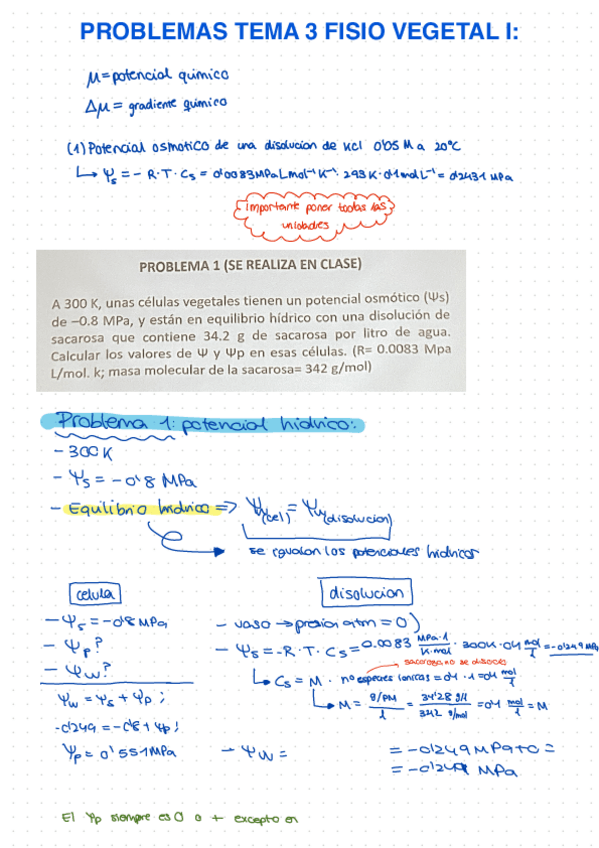 PROBLEMAS TEMA 3 FISIO VEGETAL I:
μ = potencial quimico
Δμ = gradiente quimico
(1) Potencial osmotico de una disolucion de KCl 0'05 M a 20°C
↳ Ψs = - R·T·Cs = 0'0083 MPa L mol⁻¹ K⁻¹ · 293 K · 0'1 mol L⁻¹ = 0'2431 MPa
Importante poner todas las
unidades
PROBLEMA 1 (SE REALIZA EN CLASE)
A 300 K, unas células vegetales tienen un potencial osmótico (Ψs)
de –0.8 MPa, y están en equilibrio hídrico con una disolución de
sacarosa que contiene 34.2 g de sacarosa por litro de agua.
Calcular los valores de Ψ y Ψp en esas células. (R= 0.0083 Mpa
L/mol. k; masa molecular de la sacarosa= 342 g/mol)
Problema 1: potencial hidrico:
- 300 K
- Ψs = - 0'8 MPa
- Equilibrio hidrico => Ψw(cel) = Ψw(disolucion)
se igualan los potenciales hidricos
celula
- Ψs = - 0'8 MPa
- Ψp?
- Ψw?
Ψw = Ψs + Ψp ;
-0'249 = -0'8 + Ψp ;
Ψp = 0'551 MPa
disolucion
- vaso → presion atm = 0)
- Ψs = -R·T·Cs = 0.0083 MPa·l/K·mol · 300K · 0'1 mol/l = -0'249 MPa
sacarosa no se disocia
↳ Cs = M · no especies ionicas = 0'1 · 1 = 0'1 mol/l
↳ M = g/PM / l = 34'28 g/l / 342 g/mol = 0'1 mol/l = M
→ Ψw = = -0'249 MPa + 0 =
= -0'249 MPa
El Ψp siempre es 0 o + excepto en